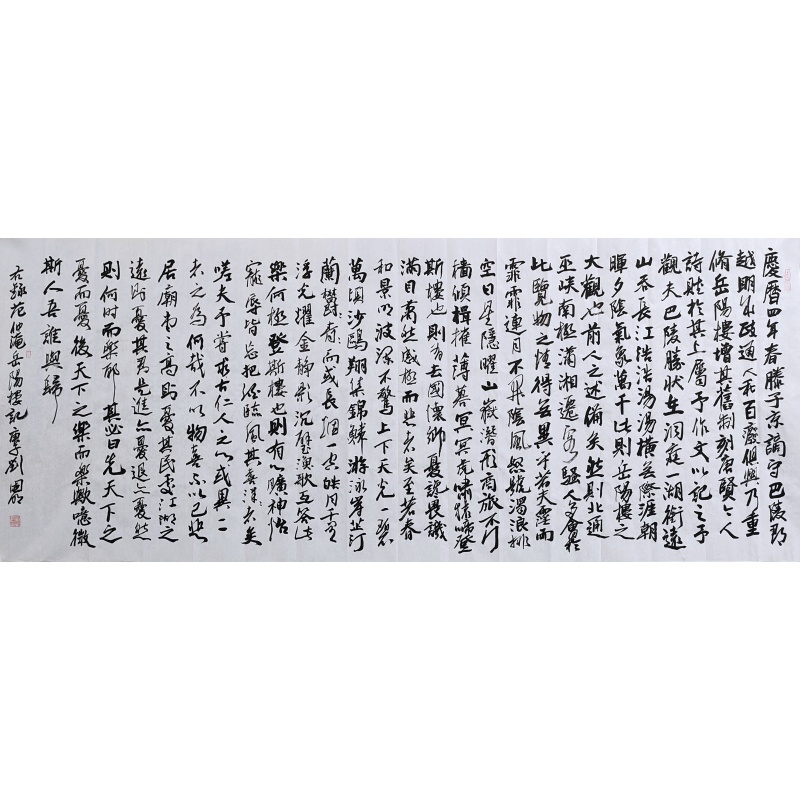 慶曆四年春滕子京謫守巴陵郡
越明年政通人和百廢俱興乃重
脩岳陽樓增其舊制刻唐賢今人
詩賦於其上屬予作文以記之予
觀夫巴陵勝狀在洞庭一湖銜遠
山吞長江浩浩湯湯橫無際涯朝
暉夕陰氣象萬千此則岳陽樓之
大觀也前人之述備矣然則北通
巫峽南極瀟湘遷客騷人多會於
此覽物之情得無異乎若夫霪雨
霏霏連月不開陰風怒號濁浪排
空日星隱曜山嶽潛形商旅不行
檣傾楫摧薄暮冥冥虎嘯猿啼登
斯樓也則有去國懷鄉憂讒畏譏
滿目蕭然感極而悲者矣至若春
和景明波瀾不驚上下天光一碧
萬頃沙鷗翔集錦鱗游泳岸芷汀
蘭欝欝青青而或長烟一空皓月千里
浮光耀金静影沉璧漁歌互答此
樂何極登斯樓也則有心曠神怡
寵辱皆忘把酒臨風其喜洋洋者矣
嗟夫予嘗求古仁人之心或異二
者之為何哉不以物喜不以己悲
居廟堂之高則憂其民處江湖之
遠則憂其君是進亦憂退亦憂然
則何时而樂耶其必曰先天下之
憂而憂後天下之樂而樂歟噫微
斯人吾誰與歸
右錄范仲淹岳陽樓記庚子劉國